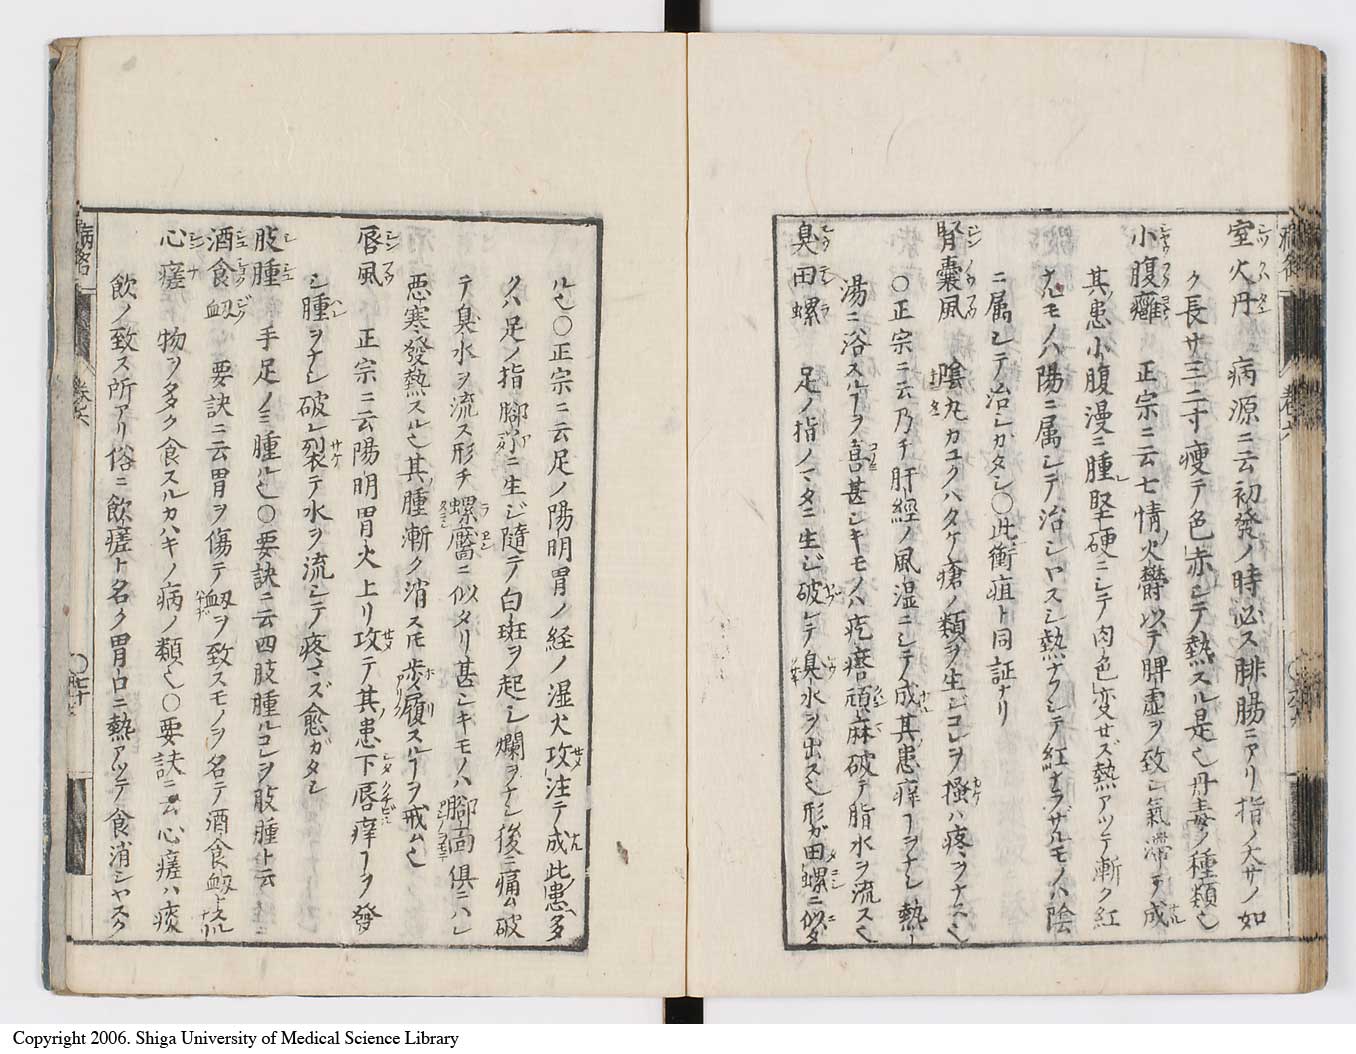 室火丹 病源ニ云初發ノ時必ス腓腸ニアリ指ノ大サノ如
ク長サ三二寸痩テ色赤シテ熱スル是也丹毒ノ種類也
小腹癰 正宗ニ云七情火欝以テ脾虚ヲ致シ氣滞テ成
其患小腹漫ニ腫レ堅硬ニシテ肉色変セズ熱アツテ漸ク紅
ナルモノハ陽ニ属シテ治シヤスシ熱ナクシテ紅ナラザルモノハ陰
ニ属シテ治シガタシ〇此衝疽ト同証ナリ
腎嚢風 陰丸カユクハタケ瘡ノ類ヲ生ジコレヲ掻ハ疼ヲナス也
〇正宗ニ云乃チ肝經ノ風湿ニシテ成其患痒ヿヲナシ熱
湯ニ浴スルヿヲ喜甚シキモノハ疙瘩頑麻破テ脂水ヲ流ス也
臭田螺 足ノ指ノマタニ生ジ破レテ臭水ヲ出ス也形ガ田螺ニ似タ
ル也〇正宗ニ云足ノ陽明胃ノ経ノ湿火攻注テ成此患多
クハ足ノ指脚丫ニ生ジ隨テ白斑ヲ起シ爛ヲナシ後ニ痛ム破
テ臭水ヲ流ス形チ螺靨ニ似タリ甚シキモノハ脚高倶ニハレ
悪寒發熱スル也其腫漸ク消スモ歩履スルヿヲ戒ム也
唇風 正宗ニ云陽明胃火上リ攻テ其患下唇痒ヿヲ發
シ腫ヲナシ破レ裂テ水ヲ流シテ疼マズ愈ガタシ
肢腫 手足ノミ腫ル也〇要訣ニ云四肢腫ルコレヲ肢腫ト云
酒食衂 要訣ニ云胃ヲ傷テ衂ヲ致スモノヲ名テ酒食衂ト云ルナリ
心瘥 物ヲ多ク食スルカハキノ病ノ類也〇要訣ニ云心瘥ハ痰
飲ノ致ス所アリ俗ニ飲瘥ト名ク胃口ニ熱アツテ食消シヤスク
巻六
Copyright 2006. Shiga University of Medical Science Library